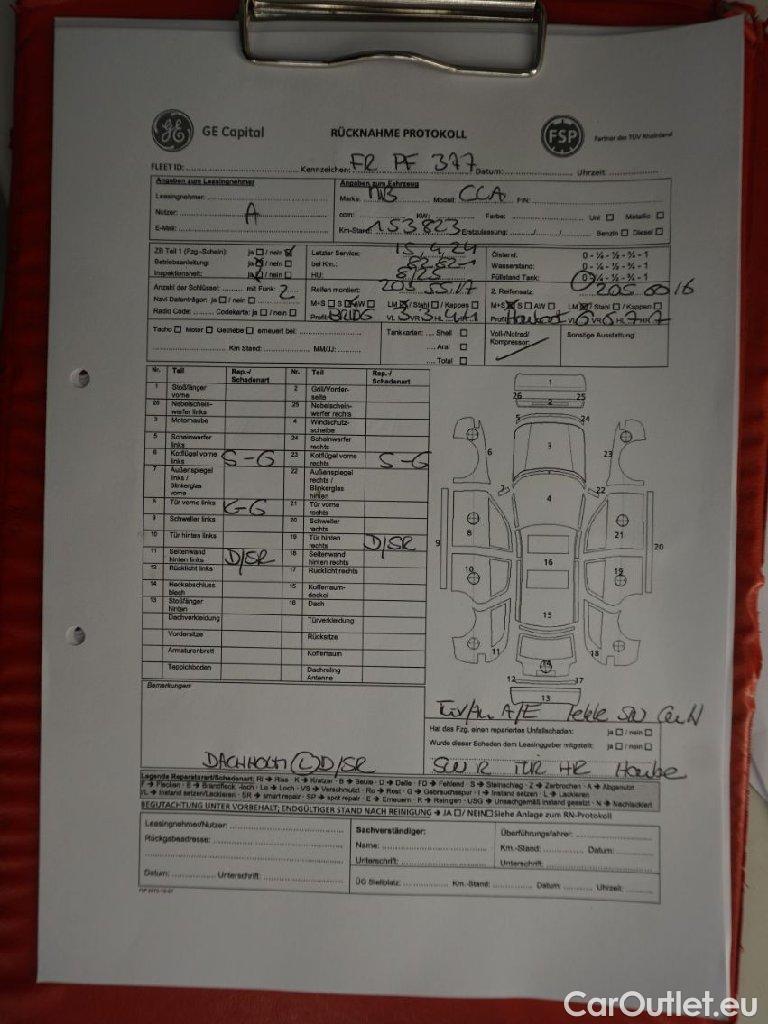 GE Capital RÜCKNAHME PROTOKOLL FSP Partner der TÜV Rheinland
FLEET ID: Kennzeichen: FR PF 377 Datum: Uhrzeit:
Angaben zum Leasingnehmer
Leasingnehmer:
Nutzer: A
E-Mail:
Angaben zum Fahrzeug
Marke: MB Modell: CLA FIN:
ccm: KW: Farbe: Uni Metallic
Km-Stand: 153823 Erstzulassung: Benzin Diesel
ZB Teil 1 (Fzg-Schein): ja / nein
Betriebsanleitung: ja / nein
Inspektionsheft: ja / nein
Letzter Service: 15.4.24
bei Km.:
HU: 8/25
Ölstand: 0 - ¼ - ½ - ¾ - 1
Wasserstand: 0 - ¼ - ½ - ¾ - 1
Füllstand Tank: 0 - ¼ - ½ - ¾ - 1
Anzahl der Schlüssel: mit Funk: 2
Navi Datenträger: ja / nein
Radio Code: Codekarte: ja / nein
Reifen montiert: 205 55 17
M+S S AW LM / Stahl / Kappen
Profil
2. Reifensatz: 205 60 16
M+S S AW LM / Stahl / Kappen
Profil Hankook VL 6 VR 6 HL 7 HR 7
Tacho Motor Getriebe erneuert bei:
Km Stand: MM/JJ:
Tankkarten: Shell
Aral
Total
Voll-/Notrad/
Kompressor:
Sonstige Ausstattung
Nr. Teil Rep.-/ Schadenart Nr. Teil Rep.-/ Schadenart
1 Stoßfänger vorne 2 Grill/Vorderseite
26 Nebelscheinwerfer links 25 Nebelscheinwerfer rechts
3 Motorhaube 4 Windschutzscheibe
5 Scheinwerfer links 24 Scheinwerfer rechts
6 Kotflügel vorne links S-G 23 Kotflügel vorne rechts S-G
7 Außenspiegel links / Blinkerglas vorne 22 Außenspiegel rechts / Blinkerglas hinten
8 Tür vorne links G-G 21 Tür vorne rechts
9 Schweller links 20 Schweller rechts
10 Tür hinten links 19 Tür hinten rechts D/SR
11 Seitenwand hinten links D/SR 18 Seitenwand hinten rechts
12 Rücklicht links 17 Rücklicht rechts
14 Heckabschlussblech 15 Kofferraumdeckel
13 Stoßfänger hinten 16 Dach
Dachverkleidung Türverkleidung
Vordersitze Rücksitze
Armaturenbrett Kofferraum
Teppichboden Dachreling Antenne
1
26 25
2
5 24
6 3 23
7 22
4
8 21
9 20
16
10 19
15
11 18
14
12 17
13
Bemerkungen
DACHHOLM (L) D/SR
A/E
Hat das Fzg. einen reparierten Unfallschaden: ja / nein
Wurde dieser Schaden dem Leasinggeber mitgeteilt: ja / nein
SW R TÜR HR Haube
Legende Reparaturart/Schadenart: RI → Riss · K → Kratzer · B → Beule · D → Delle · FD → Fehlend · S → Steinschlag · Z → Zerbrochen · A → Abgenutzt
F → Flecken · E → Brandfleck -loch · Lo → Loch · VS → Verschmutzt · Ro → Rost · G → Gebrauchsspur · I → Instand setzen · L → Lackieren
I/L → Instand setzen/Lackieren · SR → smart repair · SP → spot repair · E → Erneuern · R → Reinigen · USG → Unsachgemäß instand gesetzt · N → Nachlackiert
BEGUTACHTUNG UNTER VORBEHALT; ENDGÜLTIGER STAND NACH REINIGUNG → JA / NEIN Siehe Anlage zum RN-Protokoll
Leasingnehmer/Nutzer:
Rückgabeadresse:
Datum: Unterschrift:
Sachverständiger:
Name:
Unterschrift:
Überführungsfahrer:
Km.-Stand: Datum:
Unterschrift:
ÜG Stellplatz: Km.-Stand: Datum Uhrzeit:
CarOutlet.eu